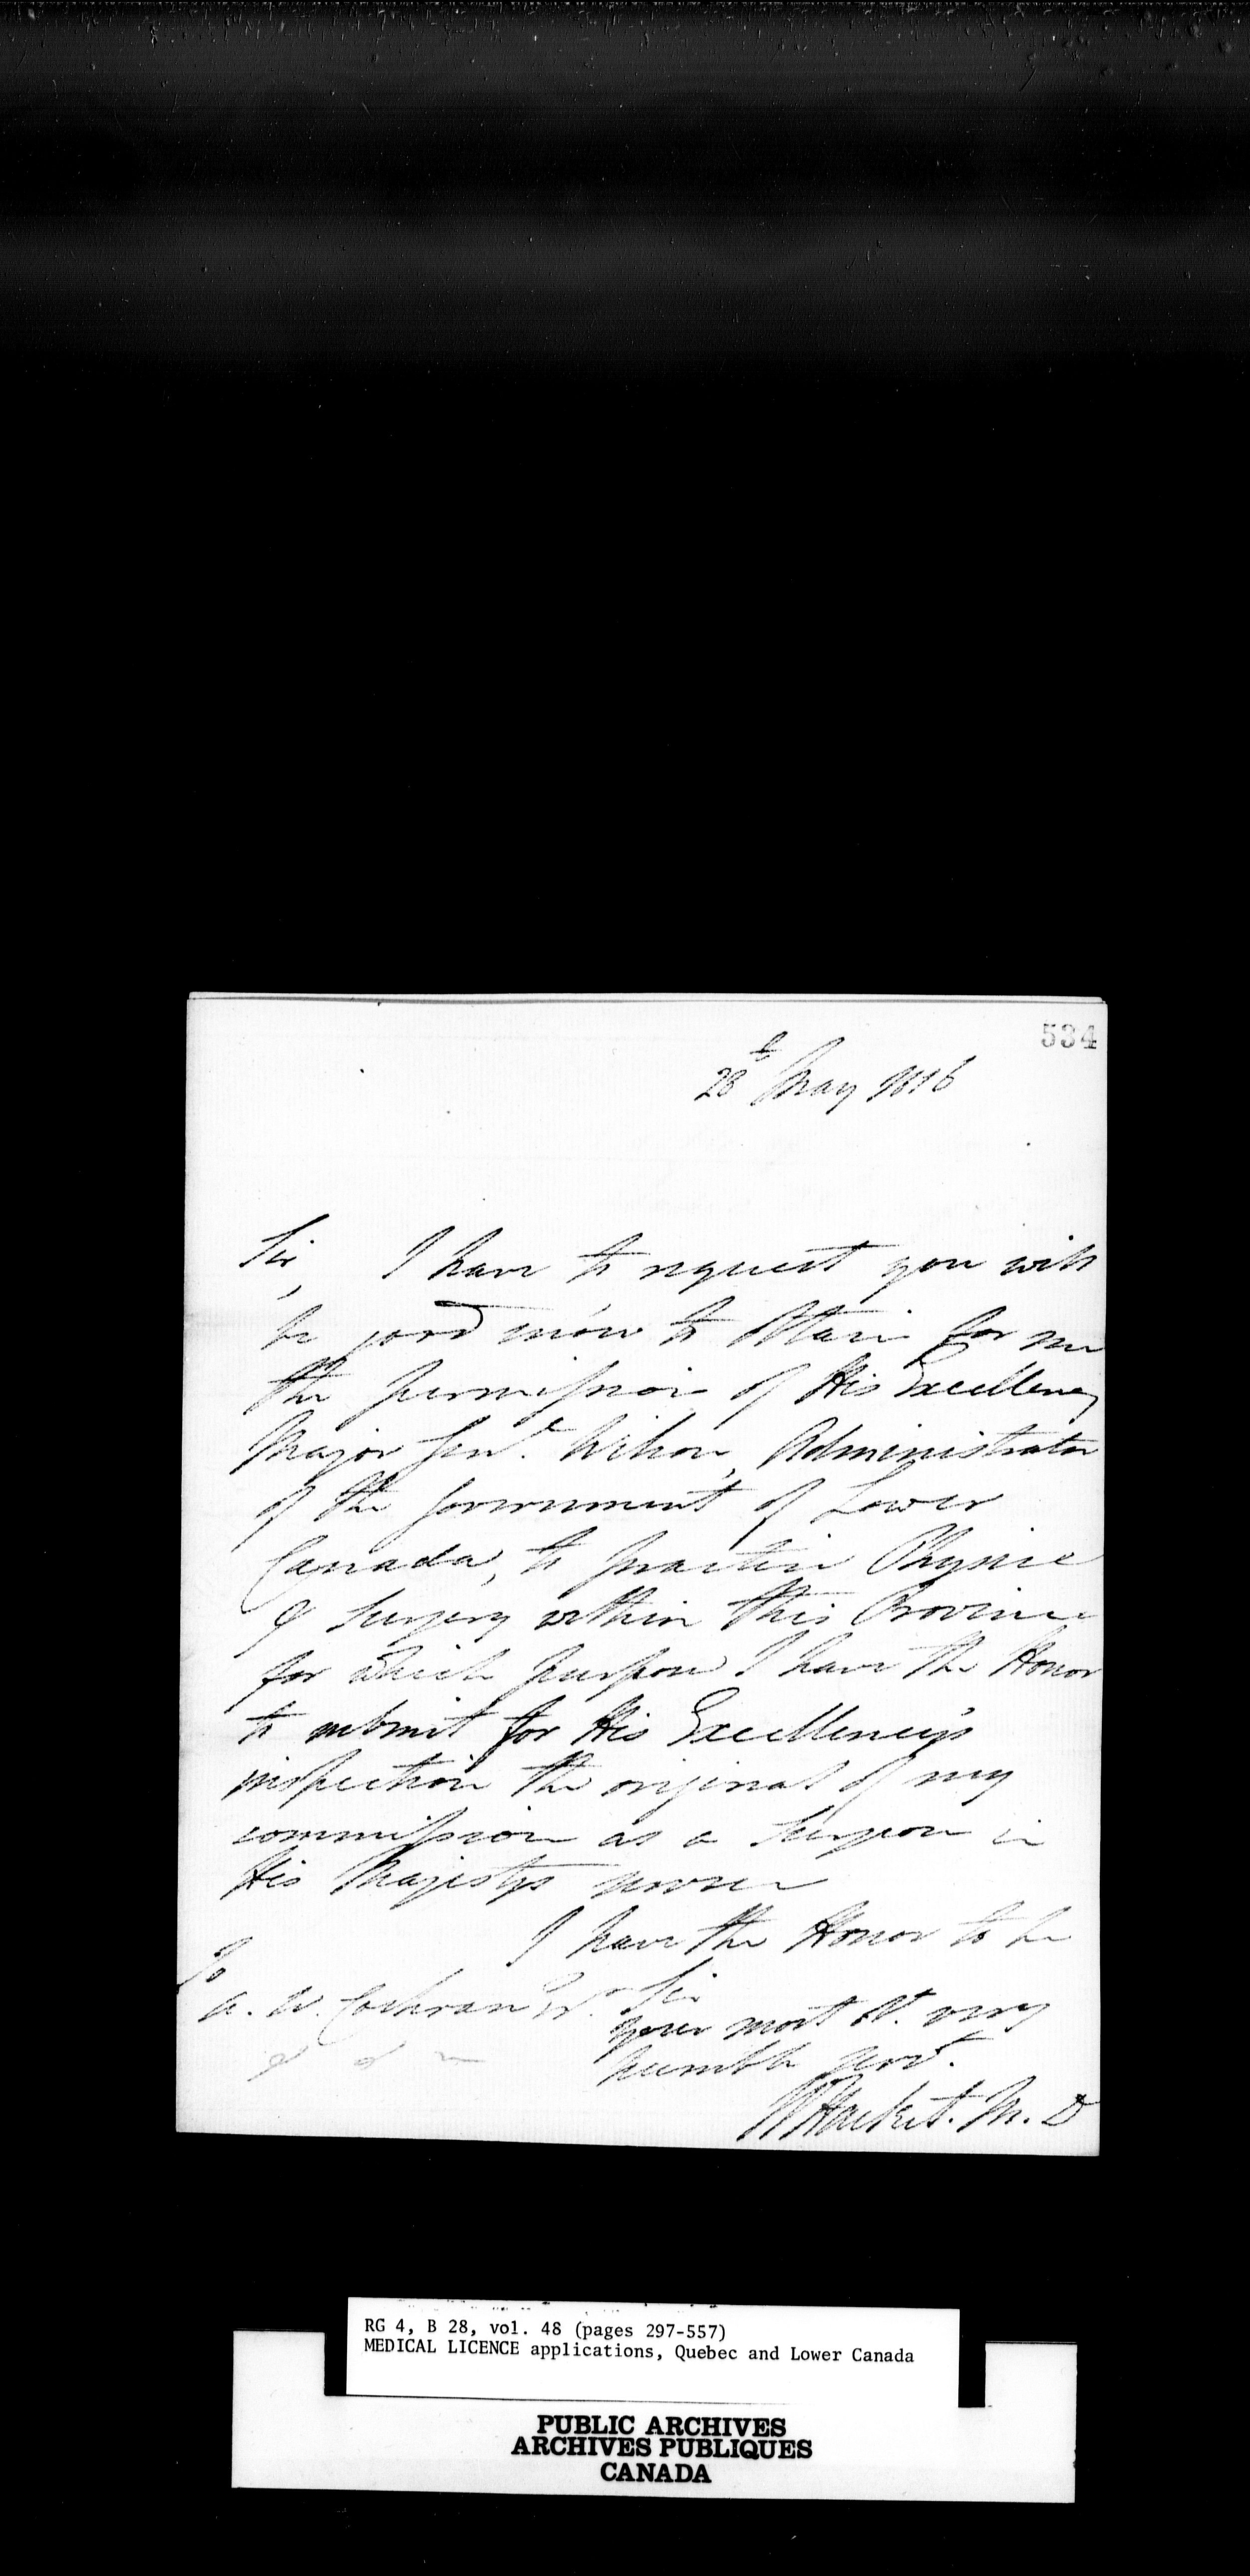 534
28th May 1816
Sir, I have to request you will
be good enow to obtain for me
the permission of His Excellency
Major Genl. Wilson, Administrator
of the Government of Lower
Canada, to practice Physic
& Surgery within this Province
for which purpose I have the Honor
to submit for His Excellency's
inspection the original of my
commission as a Surgeon in
His Majestys service
I have the Honor to be
Sir
To
A. W. Cochran Esqr.
your most Ot. very
humble servt.
W Hacket. M. D
RG 4, B 28, vol. 48 (pages 297-557)
MEDICAL LICENCE applications, Quebec and Lower Canada
PUBLIC ARCHIVES
ARCHIVES PUBLIQUES
CANADA